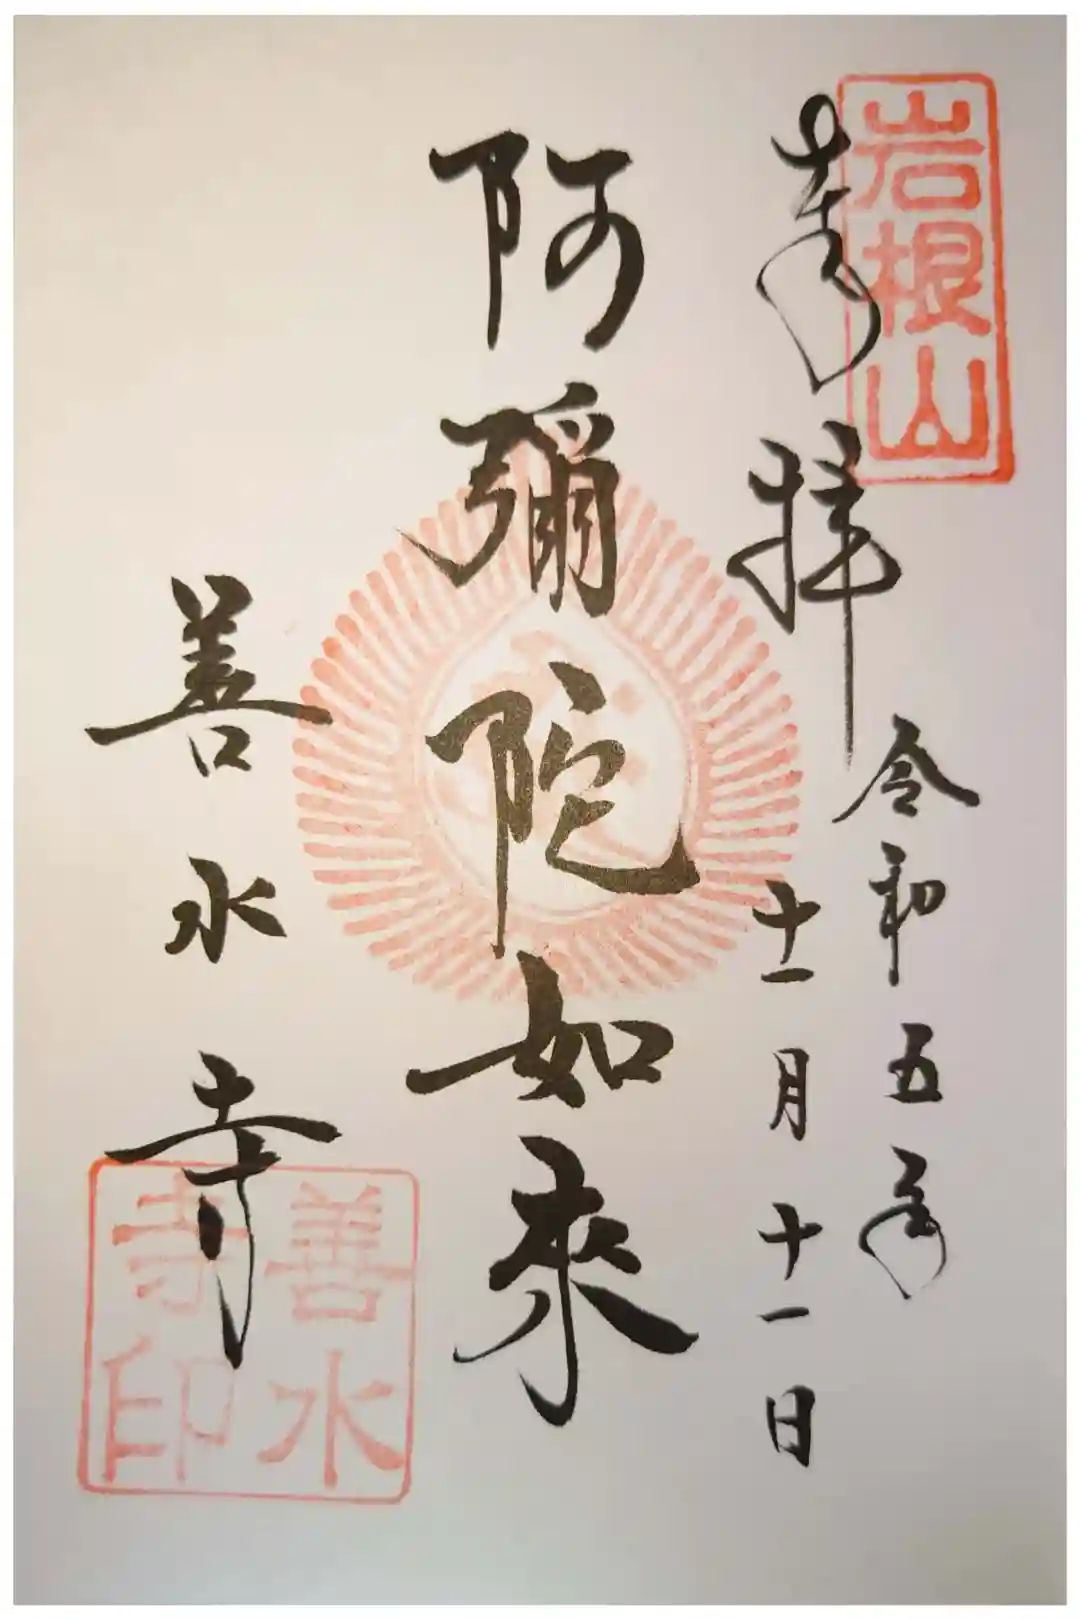 奉拝
岩根山
令和五年
十一月十一日
阿彌陀如来
善水寺
善水寺印